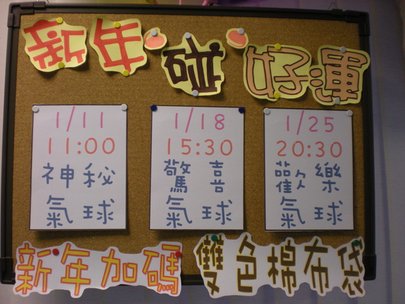 新年碰好運
1/11
11:00
神秘
氣球
1/18
15:30
驚喜
氣球
1/25
20:30
歡樂
氣球
新年加碼 雙色棉布袋